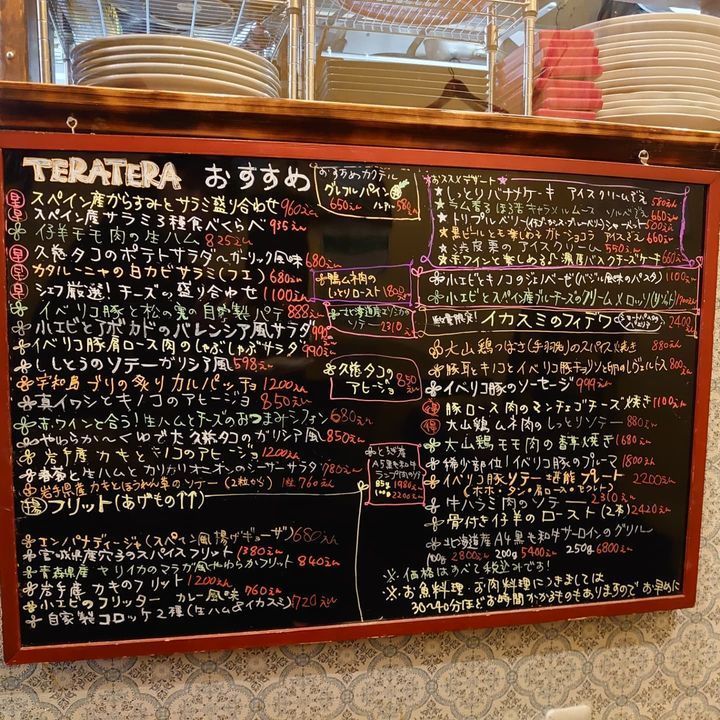 TERATERA おすすめ
早 スペイン産からすみとサラミ盛り合わせ 960えん
早 スペイン産サラミ3種食べくらべ 935えん
仔羊モモ肉の生ハム 825えん
早 久慈タコのポテトサラダ〜ガーリック風味 680えん
早 カタルーニャの白カビサラミ(フエ) 680えん
早 シェフ厳選!チーズの盛り合わせ 1100えん
イベリコ豚と松の実の自家製パテ 888えん
小エビとアボカドのバレンシア風サラダ
イベリコ豚肩ロース肉のしゃぶしゃぶサラダ 990
ししとうのソテーガリシア風 598えん
宇和島ブリの炙りカルパッチョ 1200えん
真イワシとキノコのアヒージョ 850えん
赤ワインと合う!生ハムとチーズのおつまみシフォン 680えん
やわらか〜くゆでた久慈タコのガリシア風 850えん
岩手産カキとキノコのアヒージョ 1200えん
春菊と生ハムとカリカリオニオンのシーザーサラダ 780えん
岩手県産カキとほうれん草のソテー(2粒から) 1粒 760えん
揚 フリット(あげもの↑↑)
エンパナディージャ(スペイン風揚げギョーザ) 680えん
宮城県産穴子のスパイスフリット 1380えん
青森県産ヤリイカのマラガ風やわらかフリット 840えん
岩手産カキのフリット 1200えん
小エビのフリッター カレー風味 760えん
自家製コロッケ2種(生ハム&イカスミ) 720えん
おすすめカクテル
グレフルパイン
650えん ハーフ 580えん
鴨ムネ肉の
しっとりロースト 1800えん
ソテー 2310えん
久慈タコの
アヒージョ 850えん
A5黒毛和牛
85g 1980えん
100g 2200えん
オススメデザート
★しっとりバナナケーキ アイスクリームぞえ 580えん
★ラム香るほうじ茶キャラメルムース ソルベぞえ 660えん
★黒ビールとも楽しめるガトーショコラ アイスぞえ 660えん
★渋皮栗のアイスクリーム 550えん
★赤ワインと楽しめる♪濃厚バスクチーズケーキ 660えん
小エビとキノコのジェノベーゼ(バジル風味のパスタ) 1100えん
小エビとスペイン産ブルーチーズのクリームメロッソ(リゾット)
数量限定! イカスミのフィデワ 2400えん
大山鶏つばさ(手羽先)のスパイス焼き 880えん
豚耳とキノコとイベリコ豚チョリソと卵のレヴェルトス 800えん
イベリコ豚のソーセージ 999えん
得 豚ロース肉のマンチェゴチーズ焼き 1100えん
得 大山鶏ムネ肉のしっとりソテー 880えん
大山鶏モモ肉の香草焼き 1680えん
稀少部位!イベリコ豚のプルーマ 1800えん
イベリコ豚ソテー堪能プレート 2200えん
(ホホ・タン・肩ロース・セクレト)
牛ハラミ肉のソテー 2310えん
骨付き仔羊のロースト(2本) 2420えん
北海道産A4黒毛和牛サーロインのグリル
100g 2800えん 200g 5400えん 250g 6800えん
※価格はすべて税込みです!
※お魚料理・お肉料理につきましては
30〜40分ほどお時間かかるものもありますのでお早めに